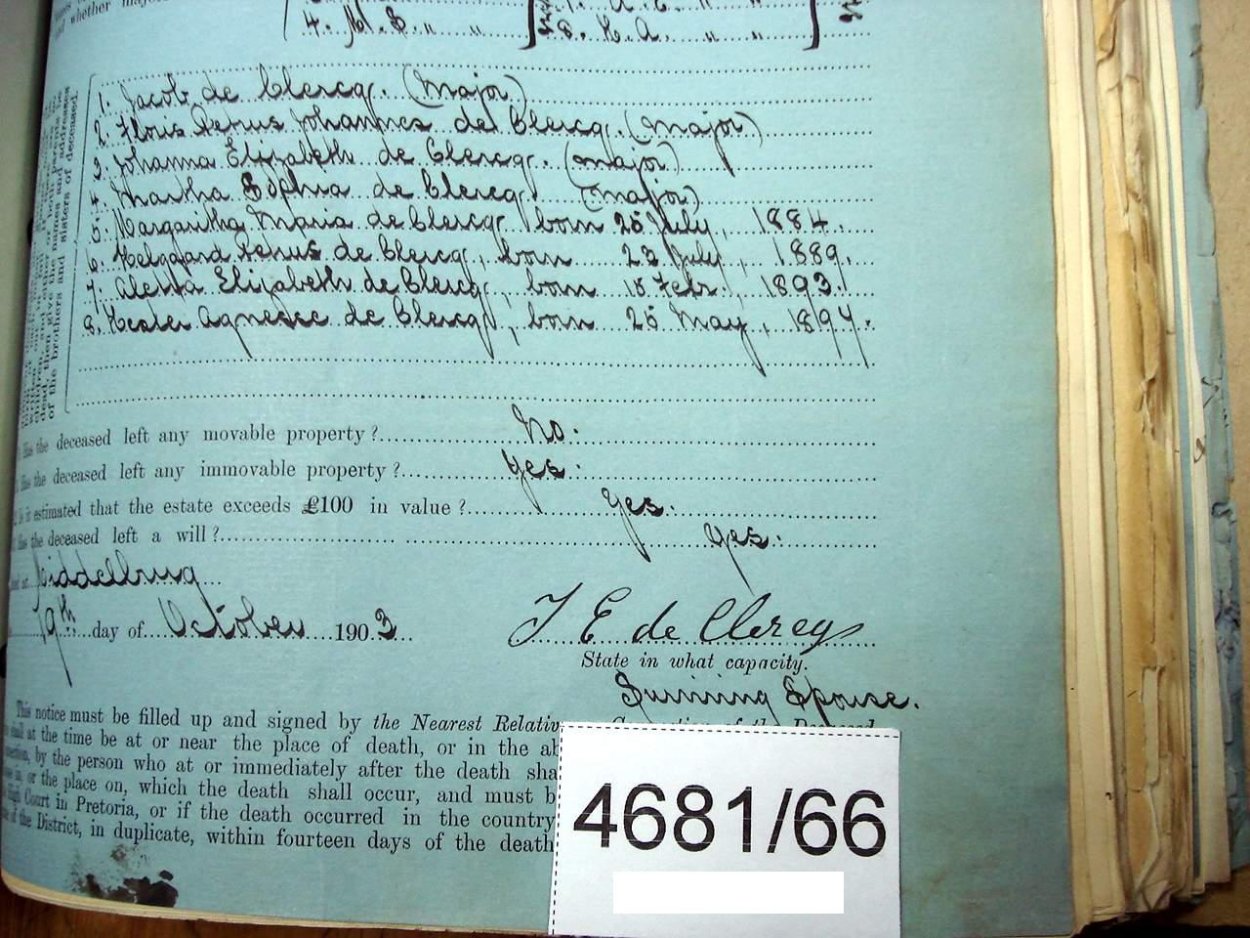 whether major
4. M. S. „ „ 8. H. A. „ „
1. Jacob de Clercq. (Major)
2. Floris Petrus Johannes de Clercq. (Major)
3. Johanna Elizabeth de Clercq. (major)
4. Martha Sophia de Clercq. (major)
5. Margaritha Maria de Clercq, born 25 July, 1884.
6. Helgaard Petrus de Clercq, born 23 July, 1889.
7. Aletta Elizabeth de Clercq, born 15 Febr., 1893.
8. Hester de Clercq, born 25 May, 1897.
dead, then give the names and addresses
of the brothers and sisters of deceased.
Has the deceased left any movable property?... No.
Has the deceased left any immovable property?... Yes.
Is it estimated that the estate exceeds £100 in value?... Yes.
Has the deceased left a will?... Yes.
at Middelburg
19th day of October 1903
J E de Clercq
State in what capacity.
Surviving Spouse.
This notice must be filled up and signed by the Nearest Relative
shall at the time be at or near the place of death, or in the
by the person who at or immediately after the death
or the place on, which the death shall occur, and must
Court in Pretoria, or if the death occurred in the country
of the District, in duplicate, within fourteen days of the death
4681/66